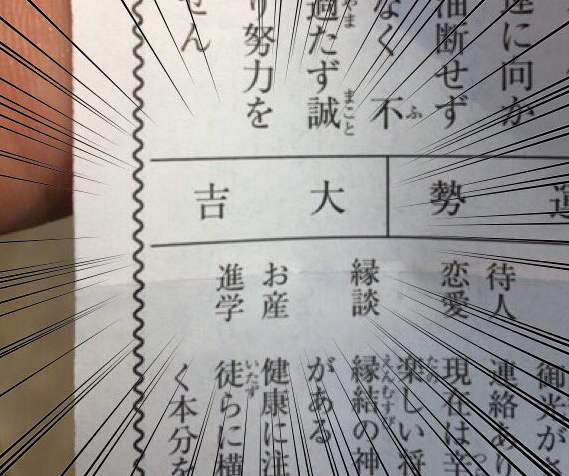 に向か
油断せず
なく 不
過たず誠
り努力を
せん
運勢
大吉
御光が
待人 連絡あり
恋愛 現在は辛
楽しい将
縁談 縁結の神
がある
お産 健康に注
進学 徒らに横
く本分を